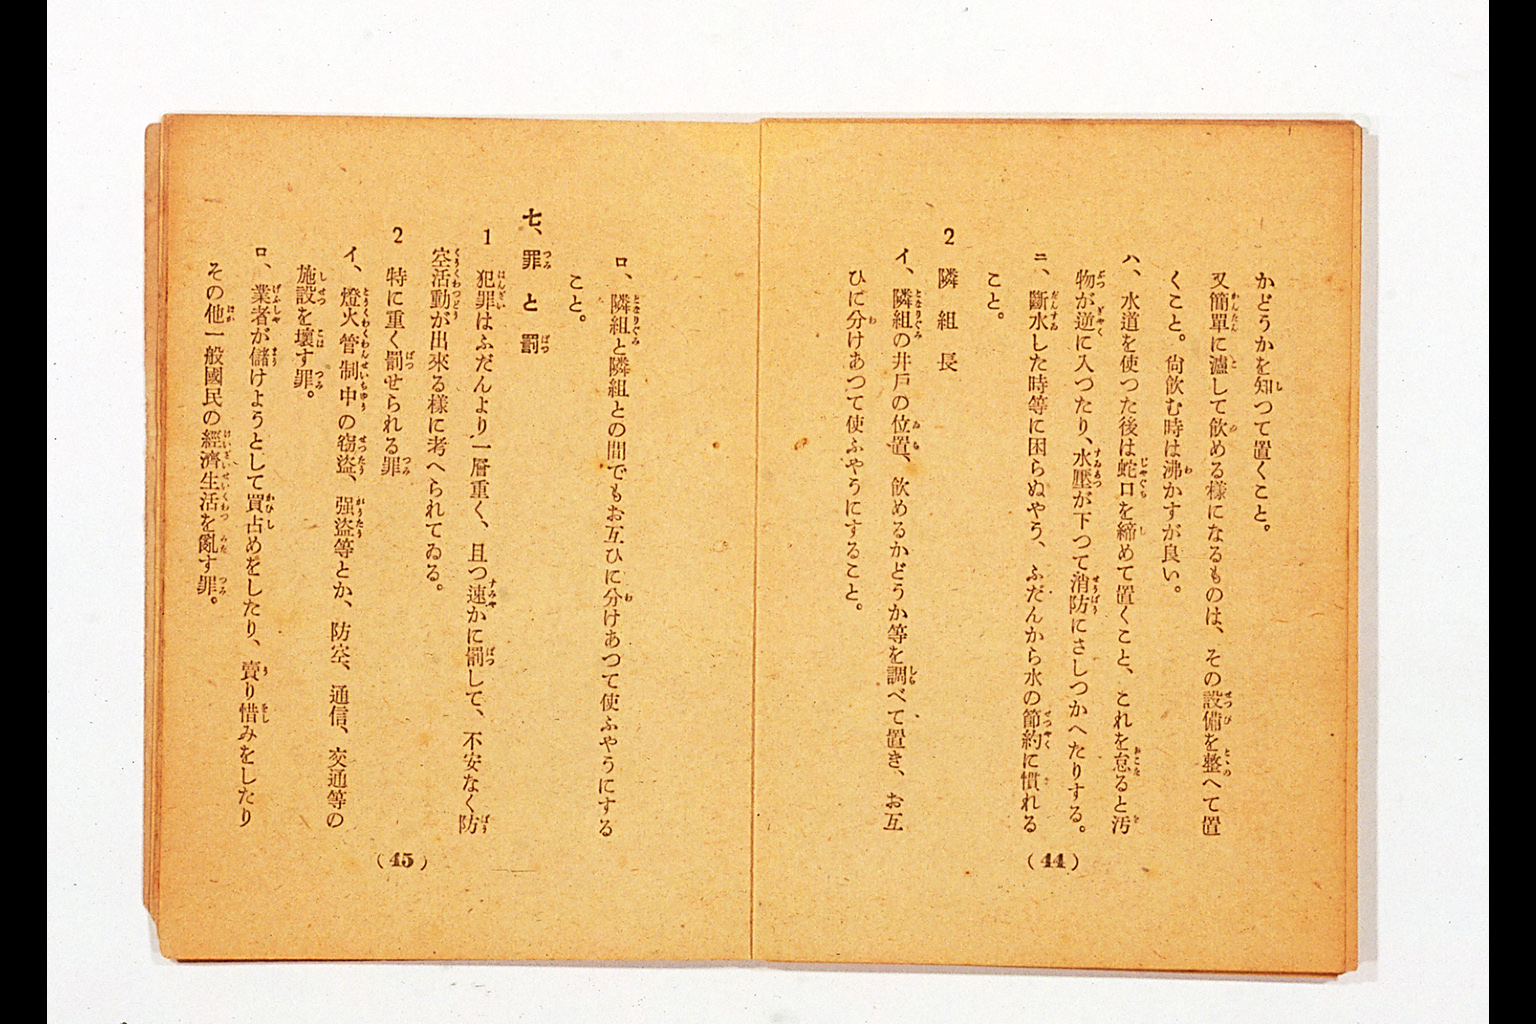 かどうかを知つて置くこと。
又簡單に濾して飮める樣になるものは、その設備を整へて置
くこと。尙飮む時は沸かすが良い。
ハ、水道を使つた後は蛇口を締めて置くこと、これを怠ると汚
物が逆に入つたり、水壓が下つて消防にさしつかへたりする。
ニ、斷水した時等に困らぬやう、ふだんから水の節約に慣れる
こと。
2 隣組長
イ、隣組の井戶の位置、飮めるかどうか等を調べて置き、お互
ひに分けあつて使ふやうにすること。
(44)
ロ、隣組と隣組との間でもお互ひに分けあつて使ふやうにする
こと。
七、罪と罰
1 犯罪はふだんより一層重く、且つ速かに罰して、不安なく防
空活動が出來る樣に考へられてゐる。
2 特に重く罰せられる罪
イ、燈火管制中の竊盜、强盜等とか、防空、通信、交通等の
施設を壞す罪。
ロ、業者が儲けようとして買占めをしたり、賣り惜みをしたり
その他一般國民の經濟生活を亂す罪。
(45)